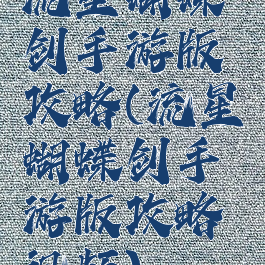 流星蝴蝶
剑手游版
攻略(流星
蝴蝶剑手
游版攻略
视频)